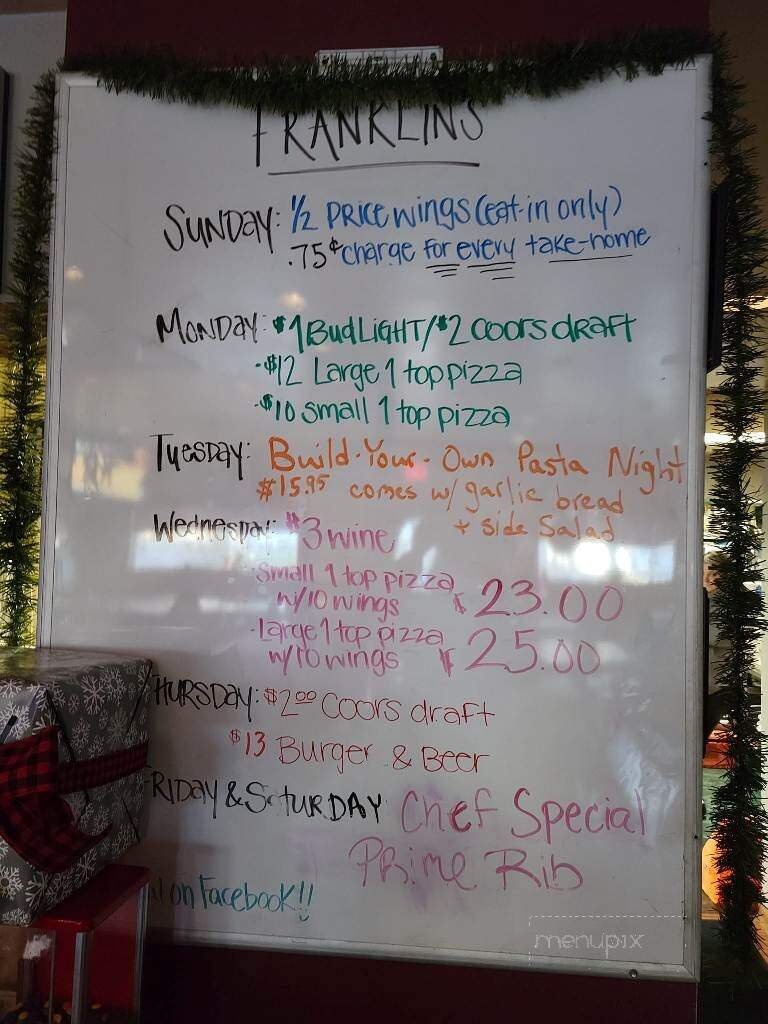 FRANKLINS
SUNDAY: 1/2 PRICE wings (eat-in only)
.75¢ charge for every take-home
MONDAY: $1 Bud LIGHT/$2 coors draft
-$12 Large 1 top pizza
-$10 small 1 top pizza
Tuesday: Build-Your-Own Pasta Night
$15.95 comes w/ garlic bread
+ side Salad
Wednesday: $3 wine
-small 1 top pizza
w/10 wings $23.00
-Large 1 top pizza
w/10 wings $25.00
THURSDAY: $2.00 coors draft
$13 Burger & Beer
FRIDAY & SATURDAY Chef Special
PRime Rib
on Facebook!!
menupix